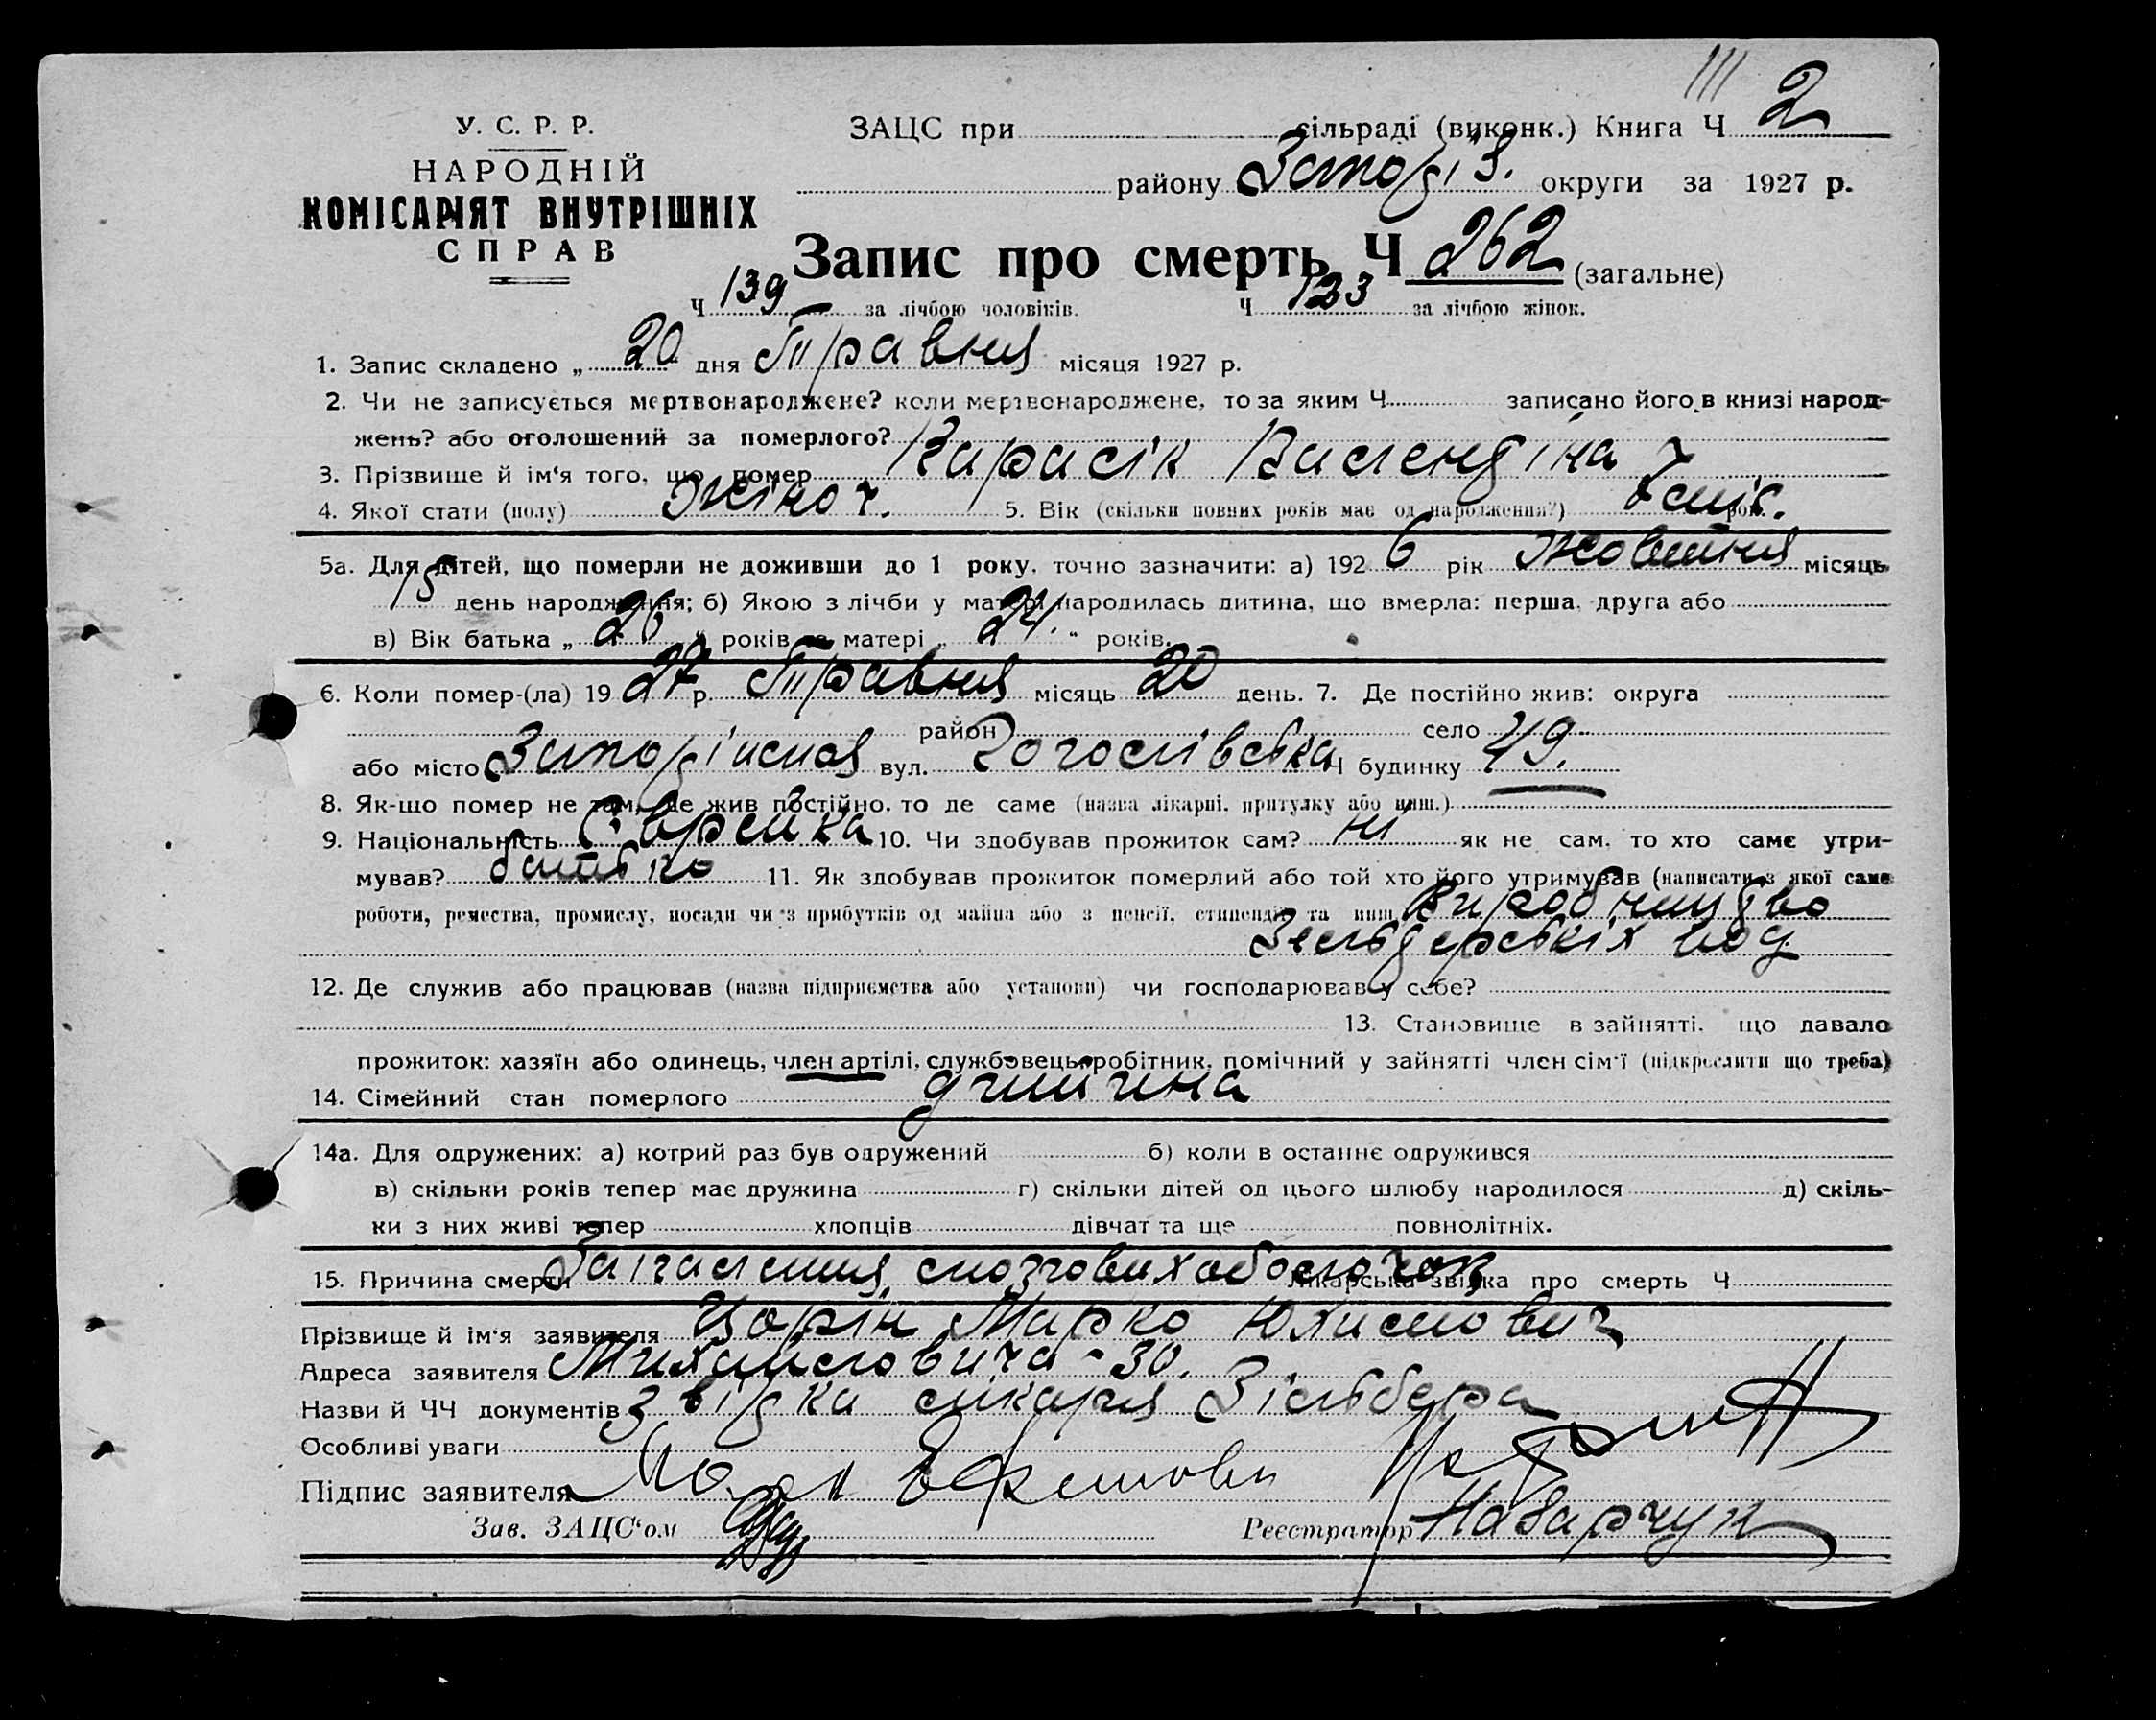 III
У. С. Р. Р.
НАРОДНІЙ
КОМІСАРІЯТ ВНУТРІШНІХ
СПРАВ
ЗАЦС при сільраді (виконк.) Книга Ч 2
району Запоріз. округи за 1927 р.
Запис про смерть Ч 262 (загальне)
Ч 139 за лічбою чоловіків. Ч 123 за лічбою жінок.
1. Запис складено „ 20 дня Травня місяця 1927 р.
2. Чи не записується мертвонароджене? коли мертвонароджене, то за яким Ч записано його в книзі народ-
жень? або оголошений за померлого?
3. Прізвище й ім'я того, що помер Карасік Валендіна
4. Якої стати (полу) Жіноч. 5. Вік (скільки повних років має од народження?) 7 міс. рок.
5а. Для дітей, що померли не доживши до 1 року, точно зазначити: а) 192 6 рік Жовтня місяць
15 день народження; б) Якою з лічби у матері народилась дитина, що вмерла: перша, друга або
в) Вік батька „ 26 “ років та матері „ 24. “ років.
6. Коли помер-(ла) 19 27 р. Травня місяць 20 день. 7. Де постійно жив: округа
район село
або місто Запоріжжя вул. Ч будинку 49.
8. Як-що помер не там, де жив постійно, то де саме (назва лікарні, притулку або инш.)
9. Національність Єврейка 10. Чи здобував прожиток сам? ні як не сам, то хто саме утри-
мував? батько 11. Як здобував прожиток померлий або той хто його утримував (написати з якої саме
роботи, ремества, промислу, посади чи з прибутків од майна або з пенсії, стипендії та инш. Виробництво
Зельдерських вод
12. Де служив або працював (назва підприємства або установи) чи господарював у себе?
13. Становище в зайнятті, що давало
прожиток: хазяїн або одинець, член артілі, службовець, робітник, помічний у зайнятті член сім'ї (підкреслити що треба)
14. Сімейний стан померлого дитина
14а. Для одружених: а) котрий раз був одружений б) коли в останнє одружився
в) скільки років тепер має дружина г) скільки дітей од цього шлюбу народилося д) скіль-
ки з них живі тепер хлопців дівчат та ще повнолітніх.
15. Причина смерти Запалення мозгових оболочок Лікарська звідка про смерть Ч
Прізвище й ім'я заявителя Цорін Марко Юхимович
Адреса заявителя Михайловича - 30.
Назви й ЧЧ документів Звідка лікаря Зільбера
Особливі уваги
Підпис заявителя
Зав. ЗАЦС'ом Реєстратор Назарчук